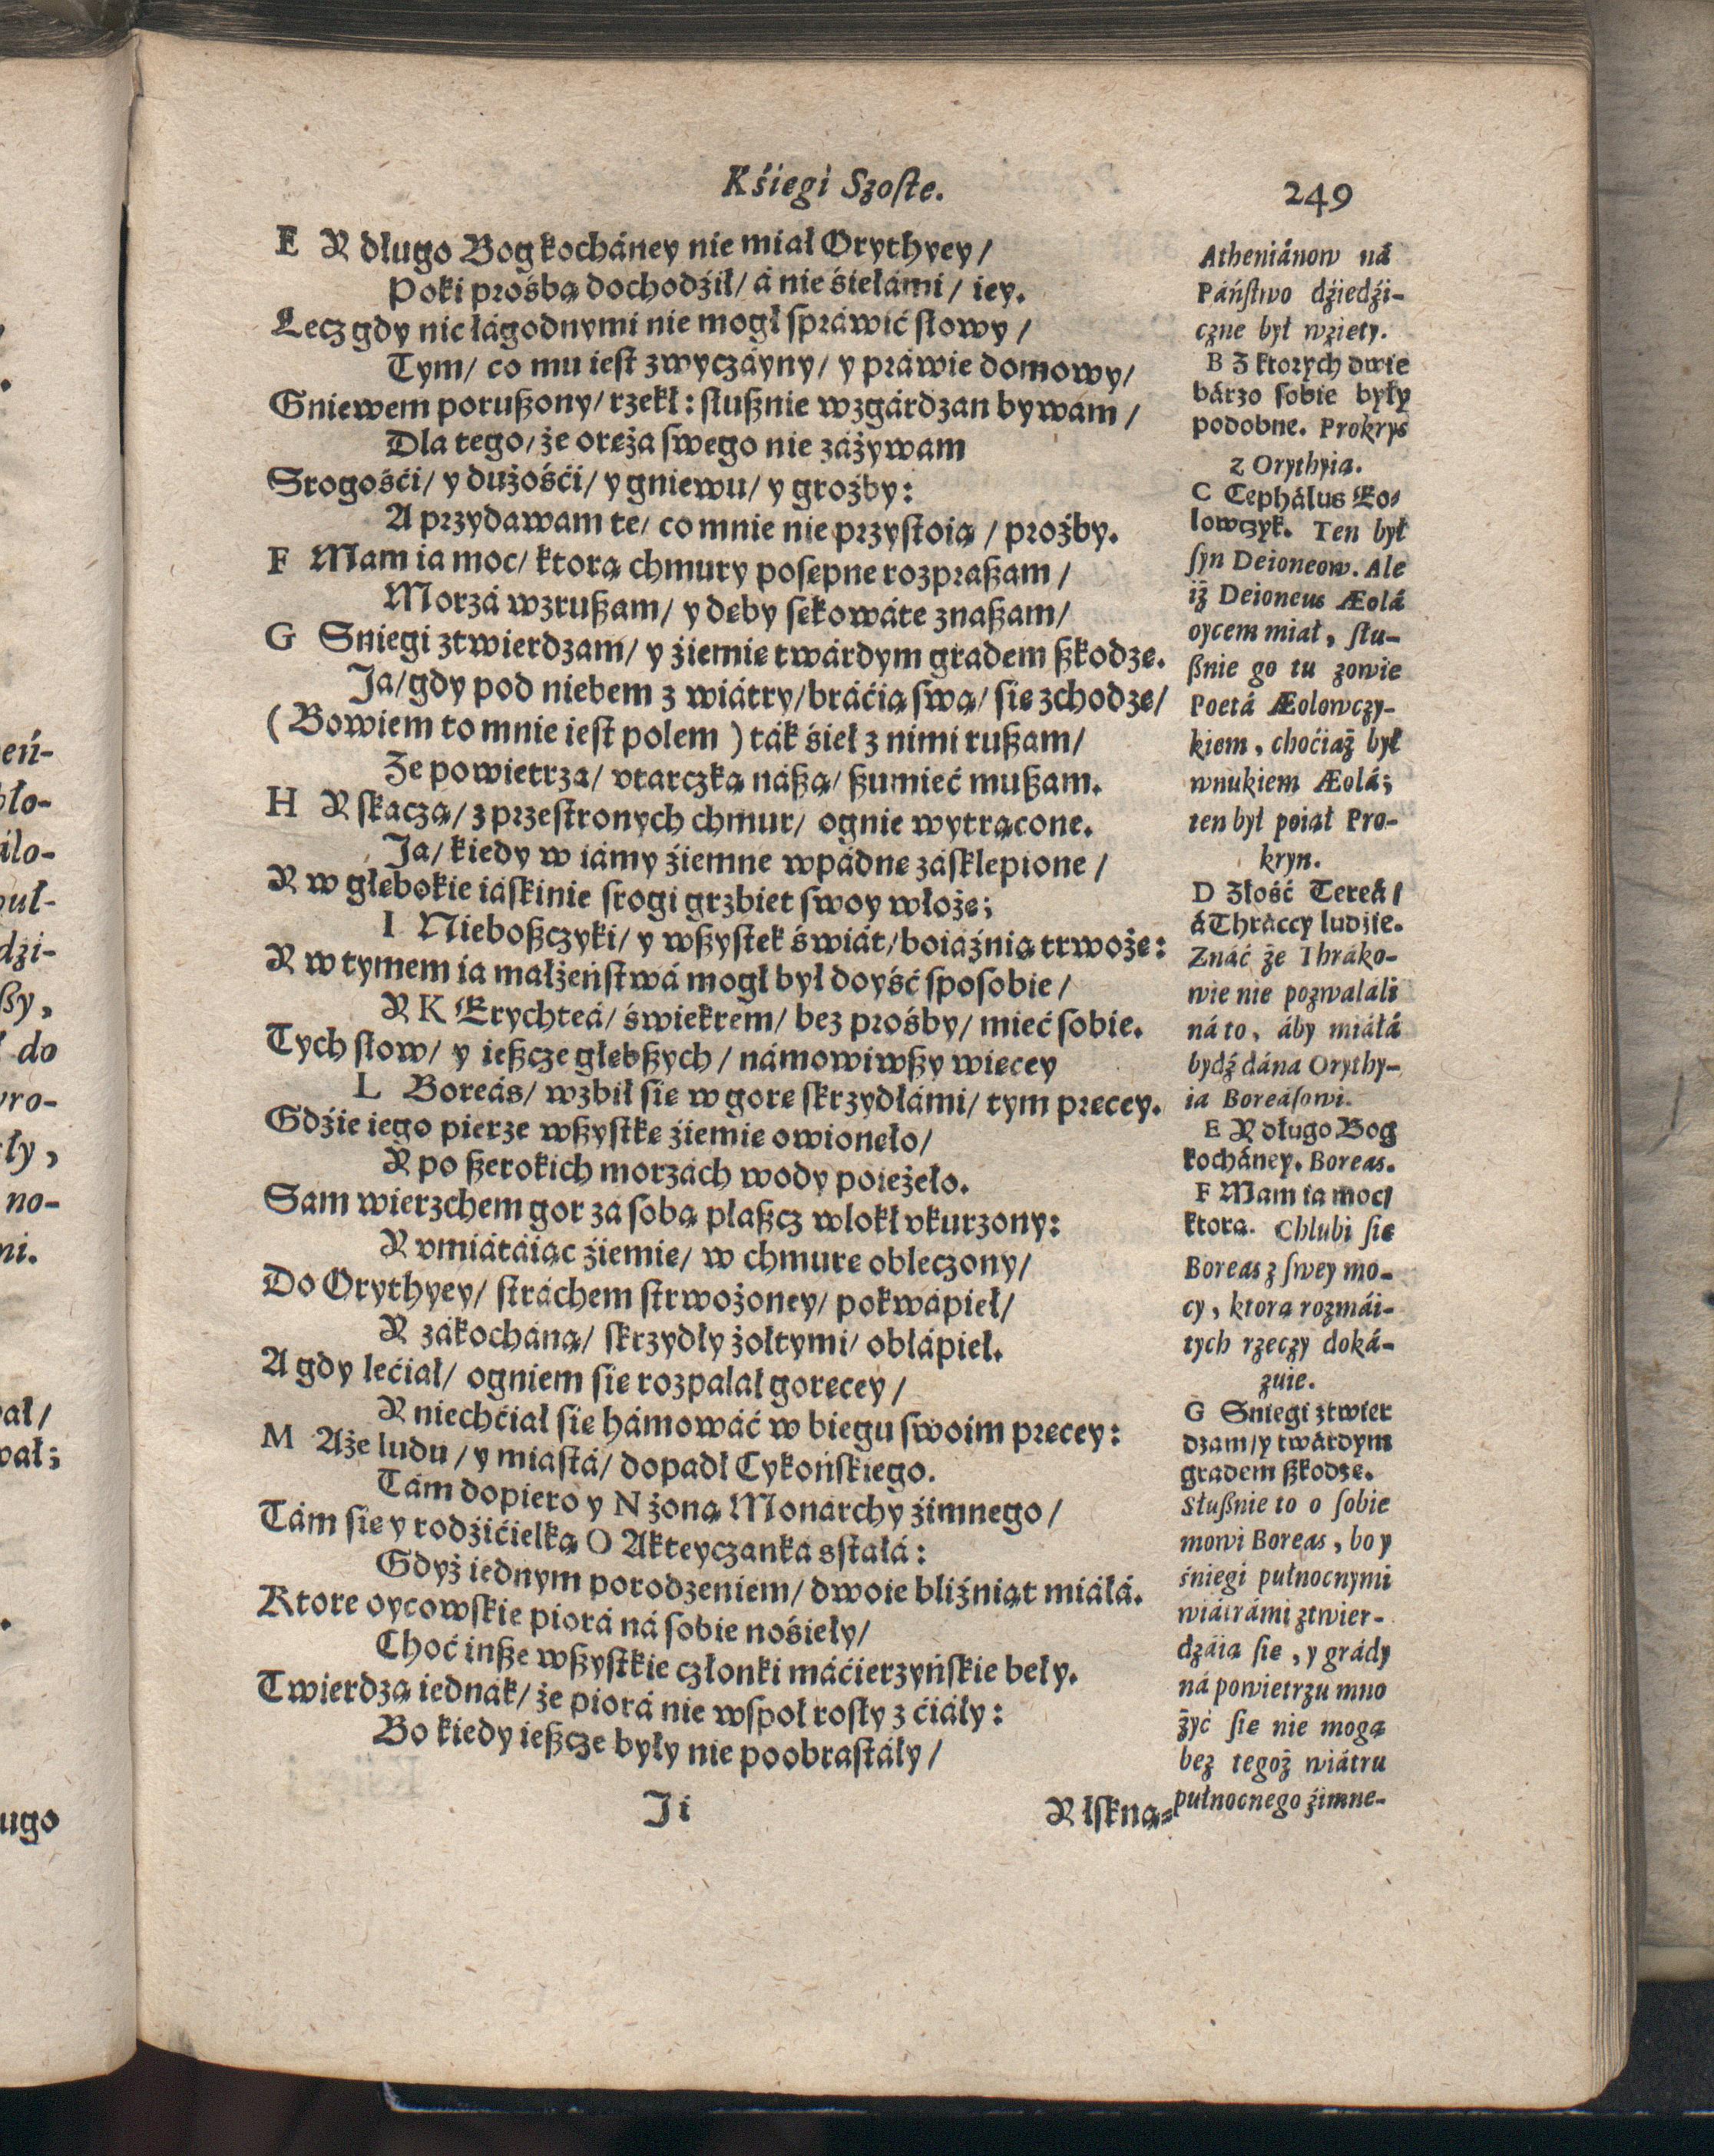 Kśięgi Szoste.
249
E Y długo Bog kocháney nie miał Orythyey/
Poki prośbą dochodźił/ á nie śiełámi/ iey.
Lecz gdy nic łágodnymi nie mogł spráwić słowy/
Tym/ co mu iest zwyczáyny/ y práwie domowy/
Gniewem porußony/ rzekł: słußnie wzgárdzan bywam/
Dla tego/ że oręża swego nie záżywam
Srogośći/ y dużośći/ y gniewu/ y groźby:
A przydawam te/ co mnie nie przystoią/ proźby.
F Mam ia moc/ ktorą chmury posępne rozpraßam/
Morzá wzrußam/ y dęby sękowáte znaßam/
G Sniegi ztwierdzam/ y źiemię twárdym gradem ßkodzę.
Ja/ gdy pod niebem z wiátry/ bráćią swą/ się zchodzę/
(Bowiem to mnie iest polem) ták śieł z nimi rußam/
Że powietrza/ vtarczką náßą/ ßumieć mußam.
H Y skaczą/ z przestronych chmur/ ognie wytrącone.
Ja/ kiedy w iámy źiemne wpádnę zásklepione/
Y w głębokie iáskinie srogi grzbiet swoy włożę;
I Nieboßczyki/ y wßystek świát/ boiáźnią trwożę:
Y w tymem ia małżeństwá mogł był doyść sposobie/
Y K Erychteá/ świekrem/ bez prośby/ mieć sobie.
Tych słow/ y ießcze głębßych/ námowiwßy więcey
L Boreás/ wzbił się w gorę skrzydłámi/ tym pręcey.
Gdźie iego pierze wßystkę źiemię owionęło/
Y po ßerokich morzách wody poieżęło.
Sam wierzchem gor za sobą płaßcz wlokł vkurzony:
Y vmiátáiąc źiemię/ w chmurę obleczony/
Do Orythyey/ stráchem strwożoney/ pokwápieł/
Y zákocháną/ skrzydły żołtymi/ obłápieł.
A gdy lećiał/ ogniem się rozpalał goręcey/
Y niechćiał się hámowáć w biegu swoim pręcey:
M Aże ludu/ y miastá/ dopadł Cykońskiego.
Tám dopiero y N żoną Monárchy źimnego/
Tám się y rodźićielką O Akteyczanká sstałá:
Gdyż iednym porodzeniem/ dwoie bliźniąt miáłá.
Ktore oycowskie piorá ná sobie nośieły/
Choć inße wßystkie członki máćierzyńskie beły.
Twierdzą iednák/ że piorá nie wspoł rosły z ćiáły:
Bo kiedy ießcze były nie poobrastáły/
Ji
Y łskną-
Atheniánow ná
Páństwo dźiedźi-
czne był wzięty.
B Z ktorych dwie
bárzo sobie były
podobne. Prokrys
z Orythyią.
C Cephálus Eo-
lowczyk. Ten był
syn Deioneow. Ale
iż Deioneus Æolá
oycem miał, słu-
ßnie go tu zowie
Poetá Æolowczy-
kiem, choćiaż był
wnukiem Æolá;
ten był poiął Pro-
kryn.
D Złość Tereá/
á Thráccy ludźie.
Znáć że Thráko-
wie nie pozwaláli
ná to, áby miáłá
bydź dána Orythy-
ia Boreásowi.
E Y długo Bog
kocháney. Boreas.
F Mam ia moc/
ktorą. Chlubi się
Boreas z swey mo-
cy, ktora rozmái-
tych rzeczy doká-
zuie.
G Sniegi ztwier
dzam/ y twárdym
gradem ßkodzę.
Słußnie to o sobie
mowi Boreas, bo y
śniegi pułnocnymi
wiátrámi ztwier-
dzáią się, y grády
ná powietrzu mno
żyć się nie mogą
bez tegoż wiátru
pułnocnego źimne-